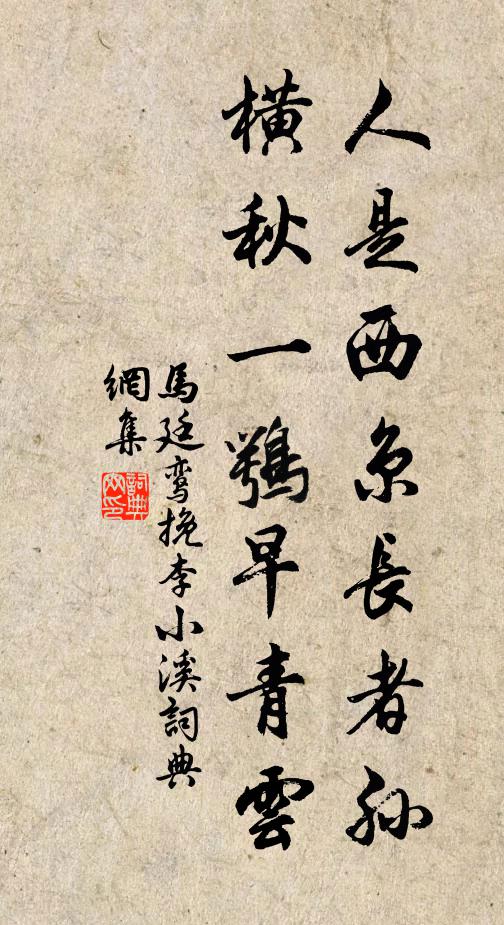 人是西京長者孫
橫秋一鶚早青雲
馬廷鸞挽李小溪詞典
網集
詞典
网印